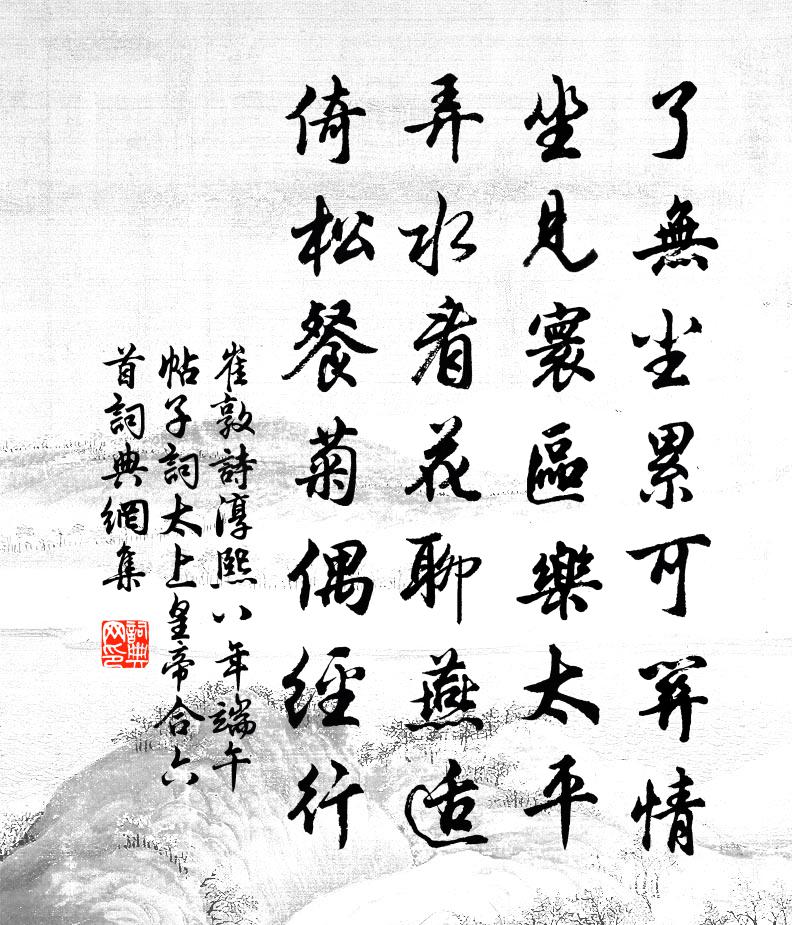 了無尘累可関情
坐見寰區樂太平
弄水看花聊燕适
倚松餐菊偶經行
崔敦詩淳熙八年端午
帖子詞太上皇帝合六
首詞典網集
詞典
网印